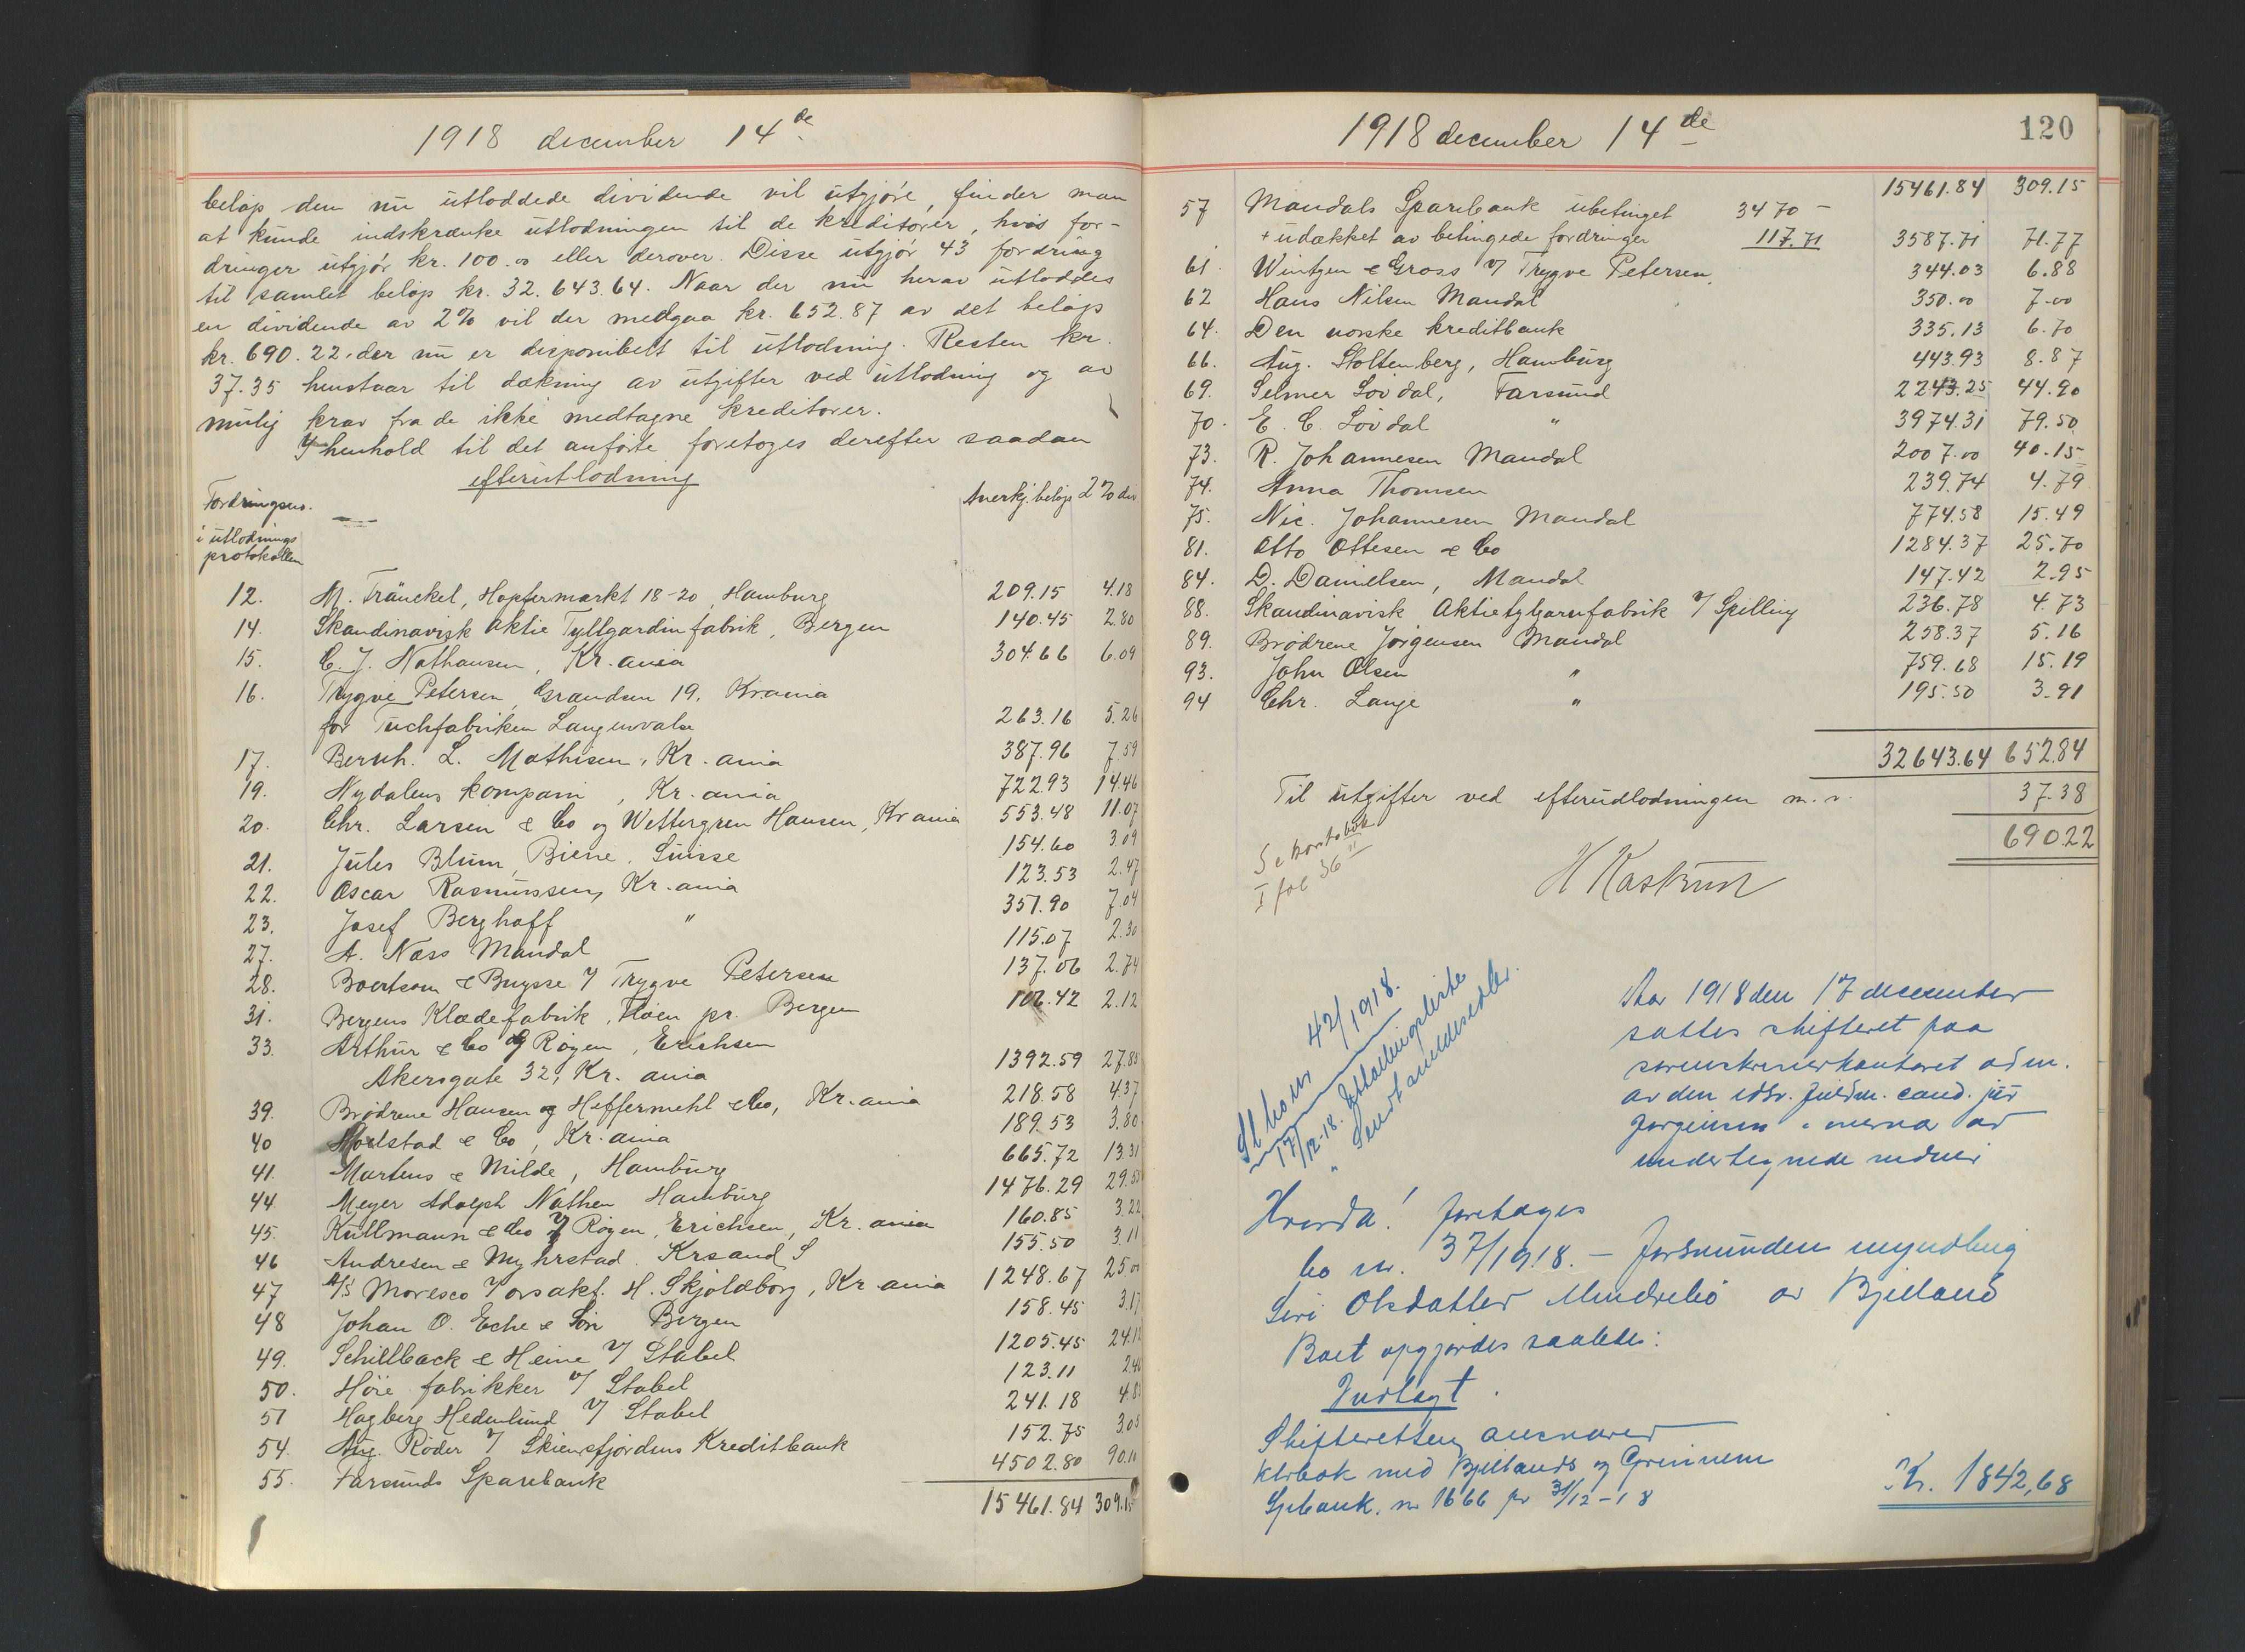 1918 december 14de
beløp den nu utloddede dividende vil utgjøre, finder man
at kunde indskrænke utlodningen til de kreditorer, hvis for-
dringer utgjør kr. 100.00 eller derover. Disse utgjør 43 fordring
til samlet beløp kr. 32.643.64. Naar der nu herav utloddes
en dividende av 2% vil der medgaa kr. 652.87 av det beløp
kr. 690.22. der nu er disponibelt til utlodning. Resten kr.
37.35 henstaar til dækning av utgifter ved utlodning og av
mulig krav fra de ikke medtagne kreditorer.
I henhold til det anførte foretoges derefter saadan
efterutlodning
Fordringsno. i utlodnings protokollen Anerkj. beløp 2% div
12. M. Fränckel, Hopfenmarkt 18-20, Hamburg 209.15 4.18
14. Skandinavisk Aktie Tyllgardinfabrik, Bergen 140.45 2.80
15. C. J. Nathansen, Kr.ania 304.66 6.09
16. Trygve Petersen, Grændsen 19, Kr.ania
for Tuchfabriken Langenvalse 263.16 5.26
17. Bernh. L. Mathisen, Kr.ania 387.96 7.59
19. Nydalens kompani, Kr.ania 722.93 14.46
20. Chr. Larsen & Co og Wettergren Hansen, Kr ania 553.48 11.07
21. Jules Blum, Biene, Suisse 154.60 3.09
22. Oscar Rasmussen, Kr.ania 123.53 2.47
23. Josef Berghoff " 351.90 7.04
27. A. Næss Mandal 115.07 2.30
28. Boertsom & Buysse v/ Trygve Petersen 137.06 2.74
31. Bergens Klædefabrik, Floen pr. Bergen 106.42 2.12
33. Arthur & Co v/ Røgen, Erichsen
Akersgate 32, Kr.ania 1392.59 27.85
39. Brødrene Hansen og Heffermehl & Co, Kr.ania 218.58 4.37
40 & Co, Kr.ania 189.53 3.80
41. Martens & Milde, Hamburg 665.72 13.31
44. Meyer Adolph Nathen Hamburg 1476.29 29.53
45. Kullmann & Co v/ Røgen, Erichsen, Kr.ania 160.85 3.22
46 Andresen & Myhrstad. Krsand S 155.50 3.11
47 A/S Moresco v/ orsakf. H. Skjoldborg, Kr ania 1248.67 25.00
48 Johan O. Eche & Søn Bergen 158.45 3.17
49. Schillback & Heine v/ Stabel 1205.45 24.12
50. Høie fabrikker v/ Stabel 123.11 2.46
51 Hagberg Hedenlund v/ Stabel 241.18 4.83
54. Aug. Röder v/ Skiensfjordens Kreditbank 152.75 3.05
55. Farsunds Sparebank 4502.80 90.10
15461.84 309.15
1918 december 14de
120
15461.84 309.15
57 Mandals Sparebank ubetinget 3470 -
+ udækket av betingede fordringer 117.71 3587.71 71.77
61. Wintgen & Gross v/ Trygve Petersen. 344.03 6.88
62 Hans Nilsen Mandal 350.00 7.00
64. Den norske kreditbank 335.13 6.70
66. Aug. Stoltenberg, Hamburg 443.93 8.87
69. Selmer Lövdal, Farsund 2243.25 44.90
70. E. C. Lövdal " 3974.31 79.50
73. R. Johannesen Mandal 2007.00 40.15
74. Anna Thomsen 239.74 4.79
75. Nic. Johannesen Mandal 774.58 15.49
81. Otto Ottesen & Co 1284.37 25.70
84. D. Danielsen, Mandal 147.42 2.95
88. Skandinavisk Aktietylgarnfabrik v/ Spilling 236.78 4.73
89. Brødrene Jørgensen Mandal 258.37 5.16
93. John Olsen " 759.68 15.19
94 Chr. Lange " 195.50 3.91
32643.64 652.84
Til utgifter ved efterudlodningen m.v. 37.38
690.22
Se kontobok
I fol 36
H Kastrun
42/1918.
17/12-18. Utbetalingsliste
" Sendt anvisesedler.
Aar 1918 den 17 december
sattes skifteret paa
sorenskriverkontoret adm.
av den edsv. fuldm. cand. jur
Jørgensen i nærvær av
undertegnede vidner
Hvorda! foretoges
bo nr. 37/1918. - forsvunden myndling
Siri Olsdatter av Bjelland
Boet opgjordes saaledes:
Indtægt.
Skifteretten ansvarer
Ktrbok med Bjellands og Grinnem
Spbank. nr 1666 pr 31/12-18 Kr. 1842,68